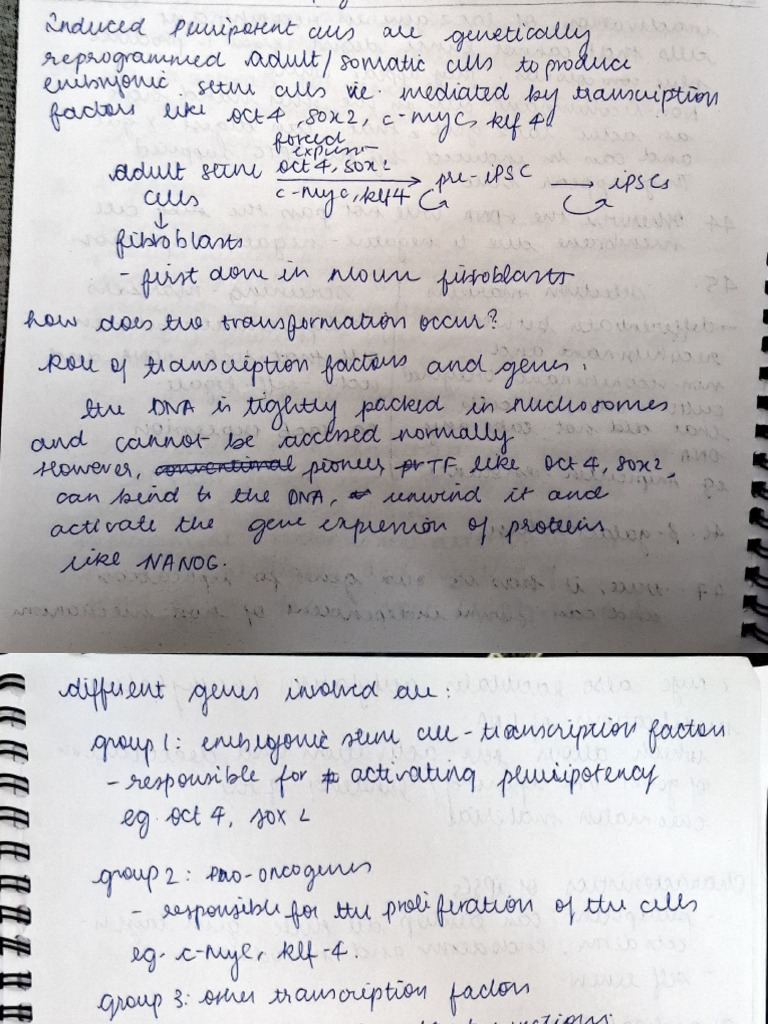 Induced pluripotent cells are genetically
reprogrammed adult/somatic cells to produce
embryonic stem cells ie. mediated by transcription
factors like oct 4, sox2, c-myc, klf 4
forced
adult stem oct 4, sox2 pre-iPSC iPSCs
cells c-myc, klf4
fibroblasts
- first done in mouse fibroblasts
how does the transformation occur?
Role of transcription factors and genes.
the DNA is tightly packed in nucleosomes
and cannot be accessed normally
However, conventional pioneer TF like oct 4, sox2
can bind to the DNA, unwind it and
activate the gene expression of proteins
like NANOG.
different genes involved are:
group 1: embryonic stem cell - transcription factors
- responsible for activating pluripotency
eg. oct 4, sox 2
group 2: pro-oncogenes
- responsible for the proliferation of the cells
eg. c-myc, klf-4.
group 3: other transcription factors